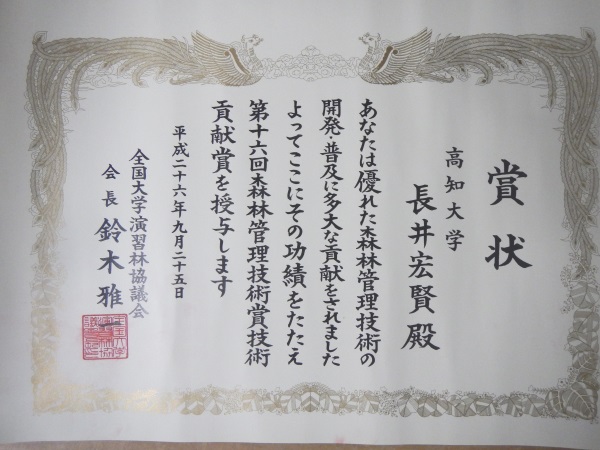 賞状
高知大学
長井宏賢殿
あなたは優れた森林管理技術の
開発・普及に多大な貢献をされました
よってここにその功績をたたえ
第十六回森林管理技術賞技術
貢献賞を授与します
平成二十六年九月二十五日
全国大学演習林協議会
会長 鈴木雅一